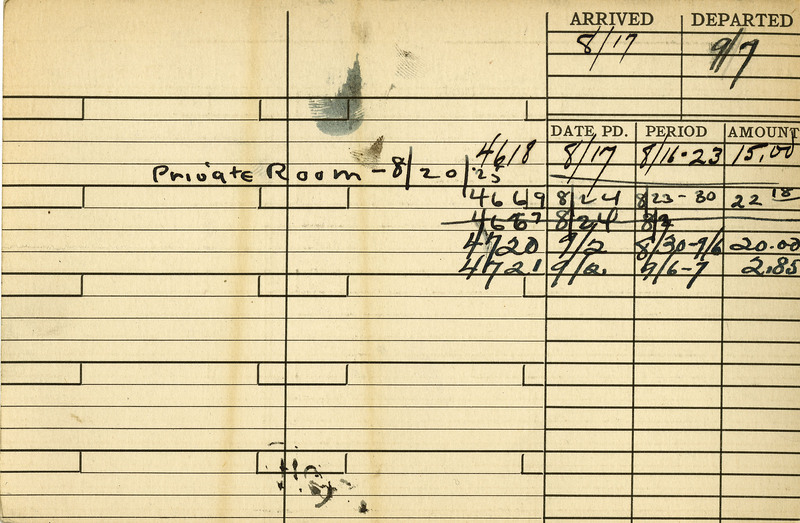 ARRIVED DEPARTED
8/17 9/7
DATE PD. PERIOD AMOUNT
4618 8/17 8/16-23 15.00
Private Room - 8/20/25
4669 8/24 8/23-30 22 18
4667 8/24 8/2
4720 9/2 8/30-9/6 20.00
4721 9/2 9/6-7 2.85